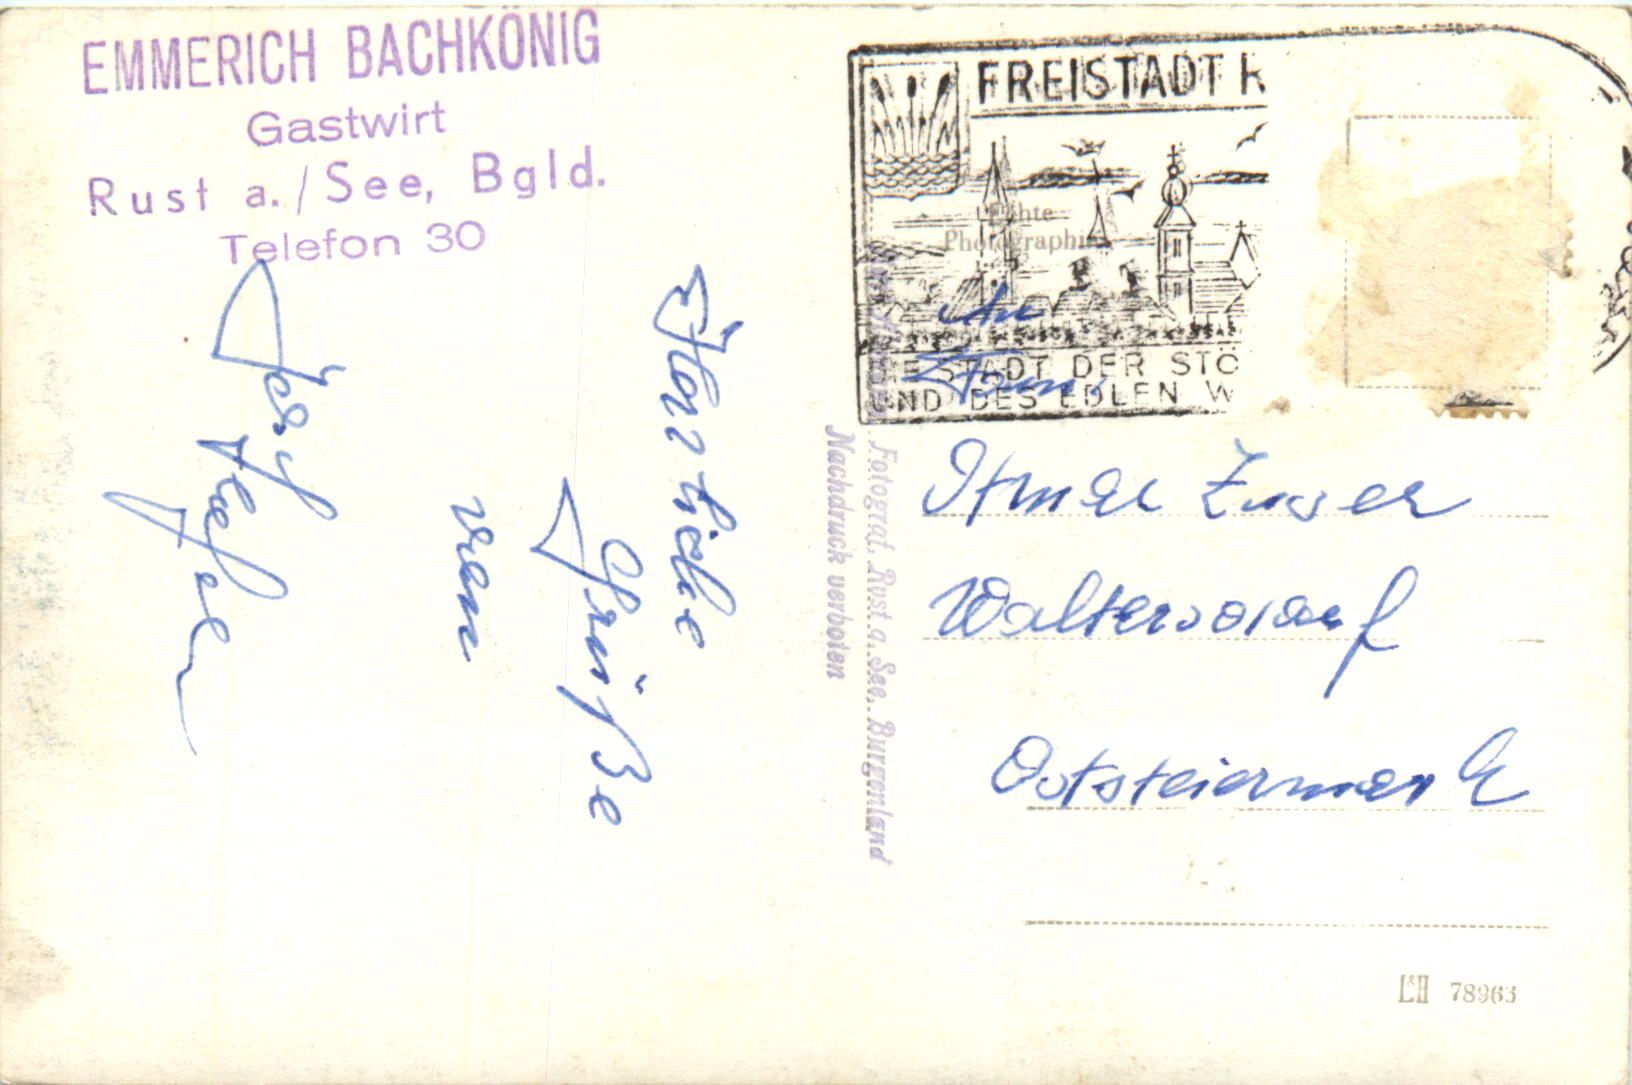 EMMERICH BACHKÖNIG
Gastwirt
Rust a./See, Bgld.
Telefon 30
Herzliche
Grüße
von
FREISTADT R
Echte
Photographie
DIE STADT DER STÖ
UND DES EDLEN W
An
Fam.
Waltersdorf
Oststeiermark
Fotograf, Rust a. See, Burgenland
Nachdruck verboten
L&H 78963